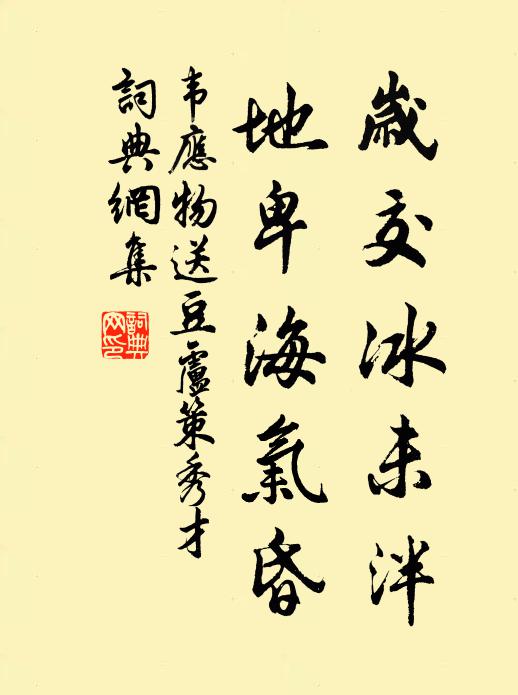 歲交冰未泮
地卑海氣昏
韦應物送豆盧策秀才
詞典網集
詞典網印